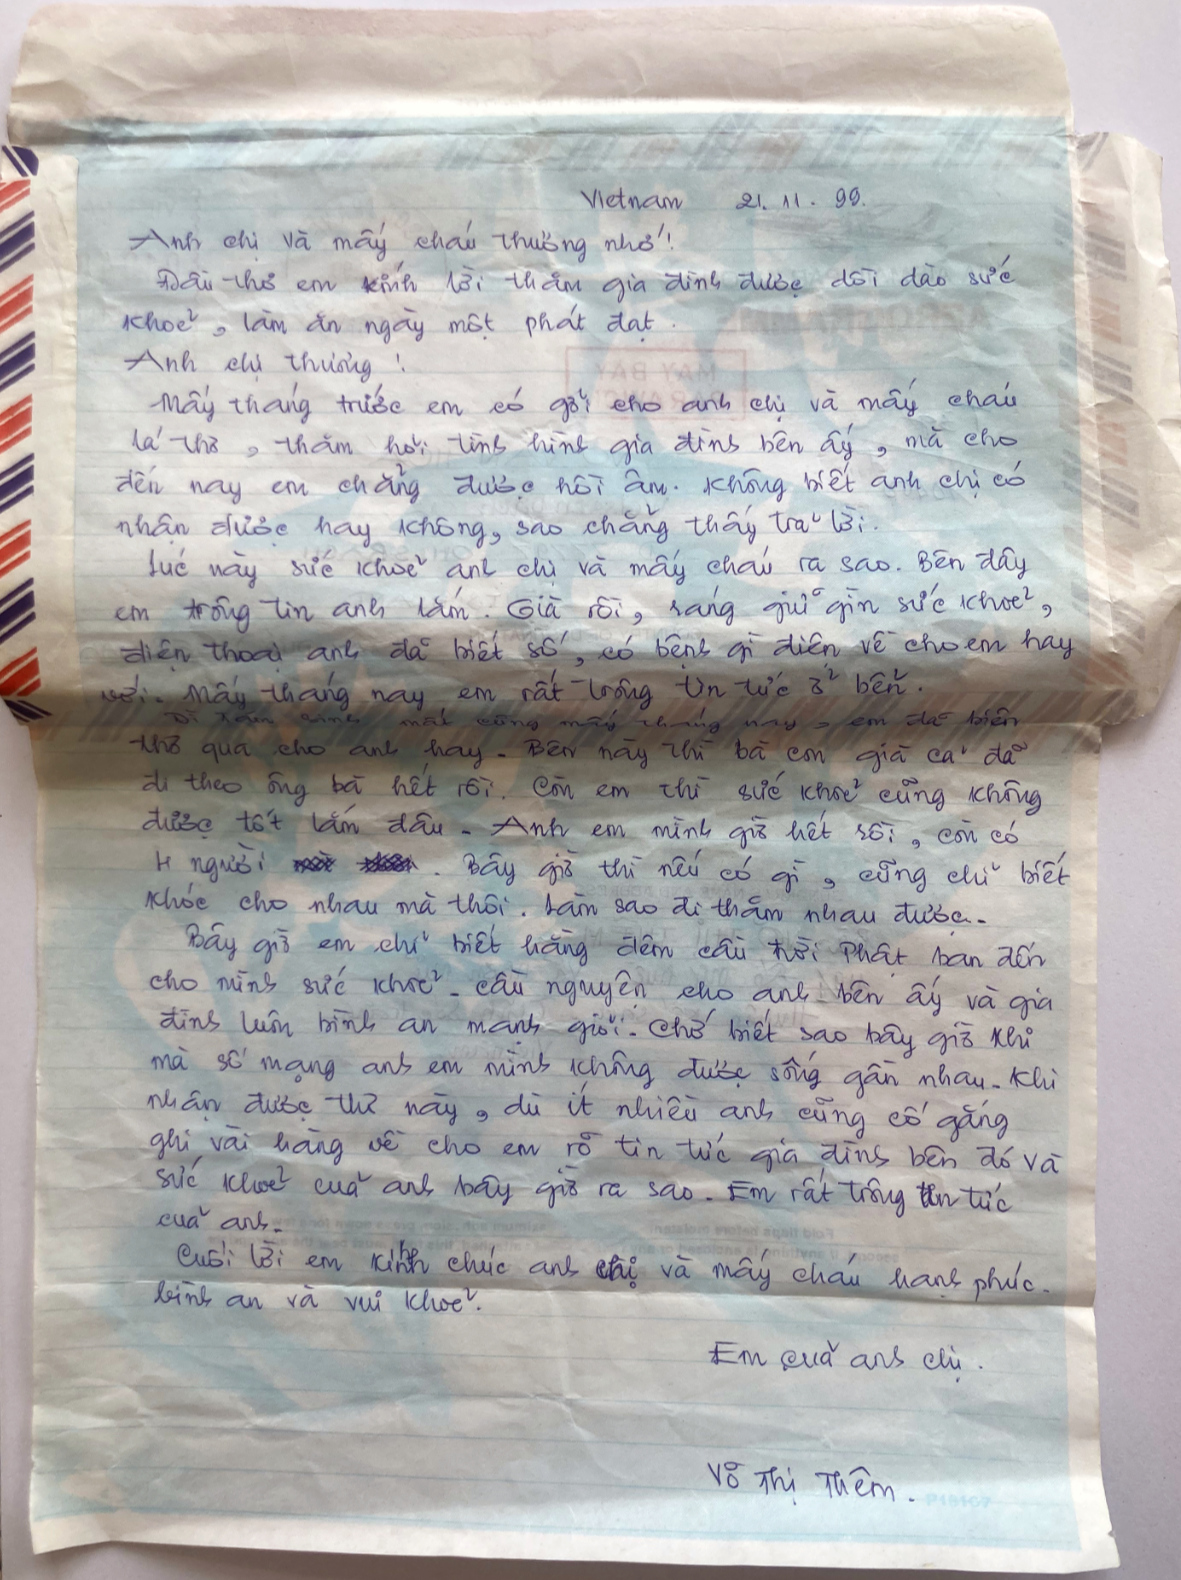 Vietnam 21. 11. 99.
Anh chị và mấy cháu thương nhớ!
Đầu thơ em kính lời thăm gia đình được dồi dào sức
khoẻ, làm ăn ngày một phát đạt.
Anh chị thương!
Mấy tháng trước em có gởi cho anh chị và mấy cháu
lá thơ, thăm hỏi tình hình gia đình bên ấy, mà cho
đến nay em chẳng được hồi âm. Không biết anh chị có
nhận được hay không, sao chẳng thấy trả lời.
Lúc này sức khoẻ anh chị và mấy cháu ra sao. Bên đây
em trông tin anh lắm. Già rồi, ráng giữ gìn sức khoẻ,
điện thoại anh đã biết số, có bệnh gì điện về cho em hay
với. Mấy tháng nay em rất trông tin tức ở bển.
Dì mất cũng mấy tháng nay, em đã biên
thơ qua cho anh hay. Bên này thì bà con già cả đã
đi theo ông bà hết rồi. Còn em thì sức khoẻ cũng không
được tốt lắm đâu. Anh em mình giờ hết rồi, còn có
4 người. Bây giờ thì nếu có gì, cũng chỉ biết
khóc cho nhau mà thôi. Làm sao đi thăm nhau được.
Bây giờ em chỉ biết hằng đêm cầu trời Phật ban đến
cho mình sức khoẻ. Cầu nguyện cho anh bên ấy và gia
đình luôn bình an mạnh giỏi. Chớ biết sao bây giờ khi
mà số mạng anh em mình không được sống gần nhau. Khi
nhận được thơ này, dù ít nhiều anh cũng cố gắng
ghi vài hàng về cho em rõ tin tức gia đình bên đó và
sức khoẻ của anh bây giờ ra sao. Em rất trông tin tức
của anh.
Cuối lời em kính chúc anh chị và mấy cháu hạnh phúc.
bình an và vui khoẻ.
Em của anh chị.
Võ Thị Thêm.
MÁY BAY
P15107